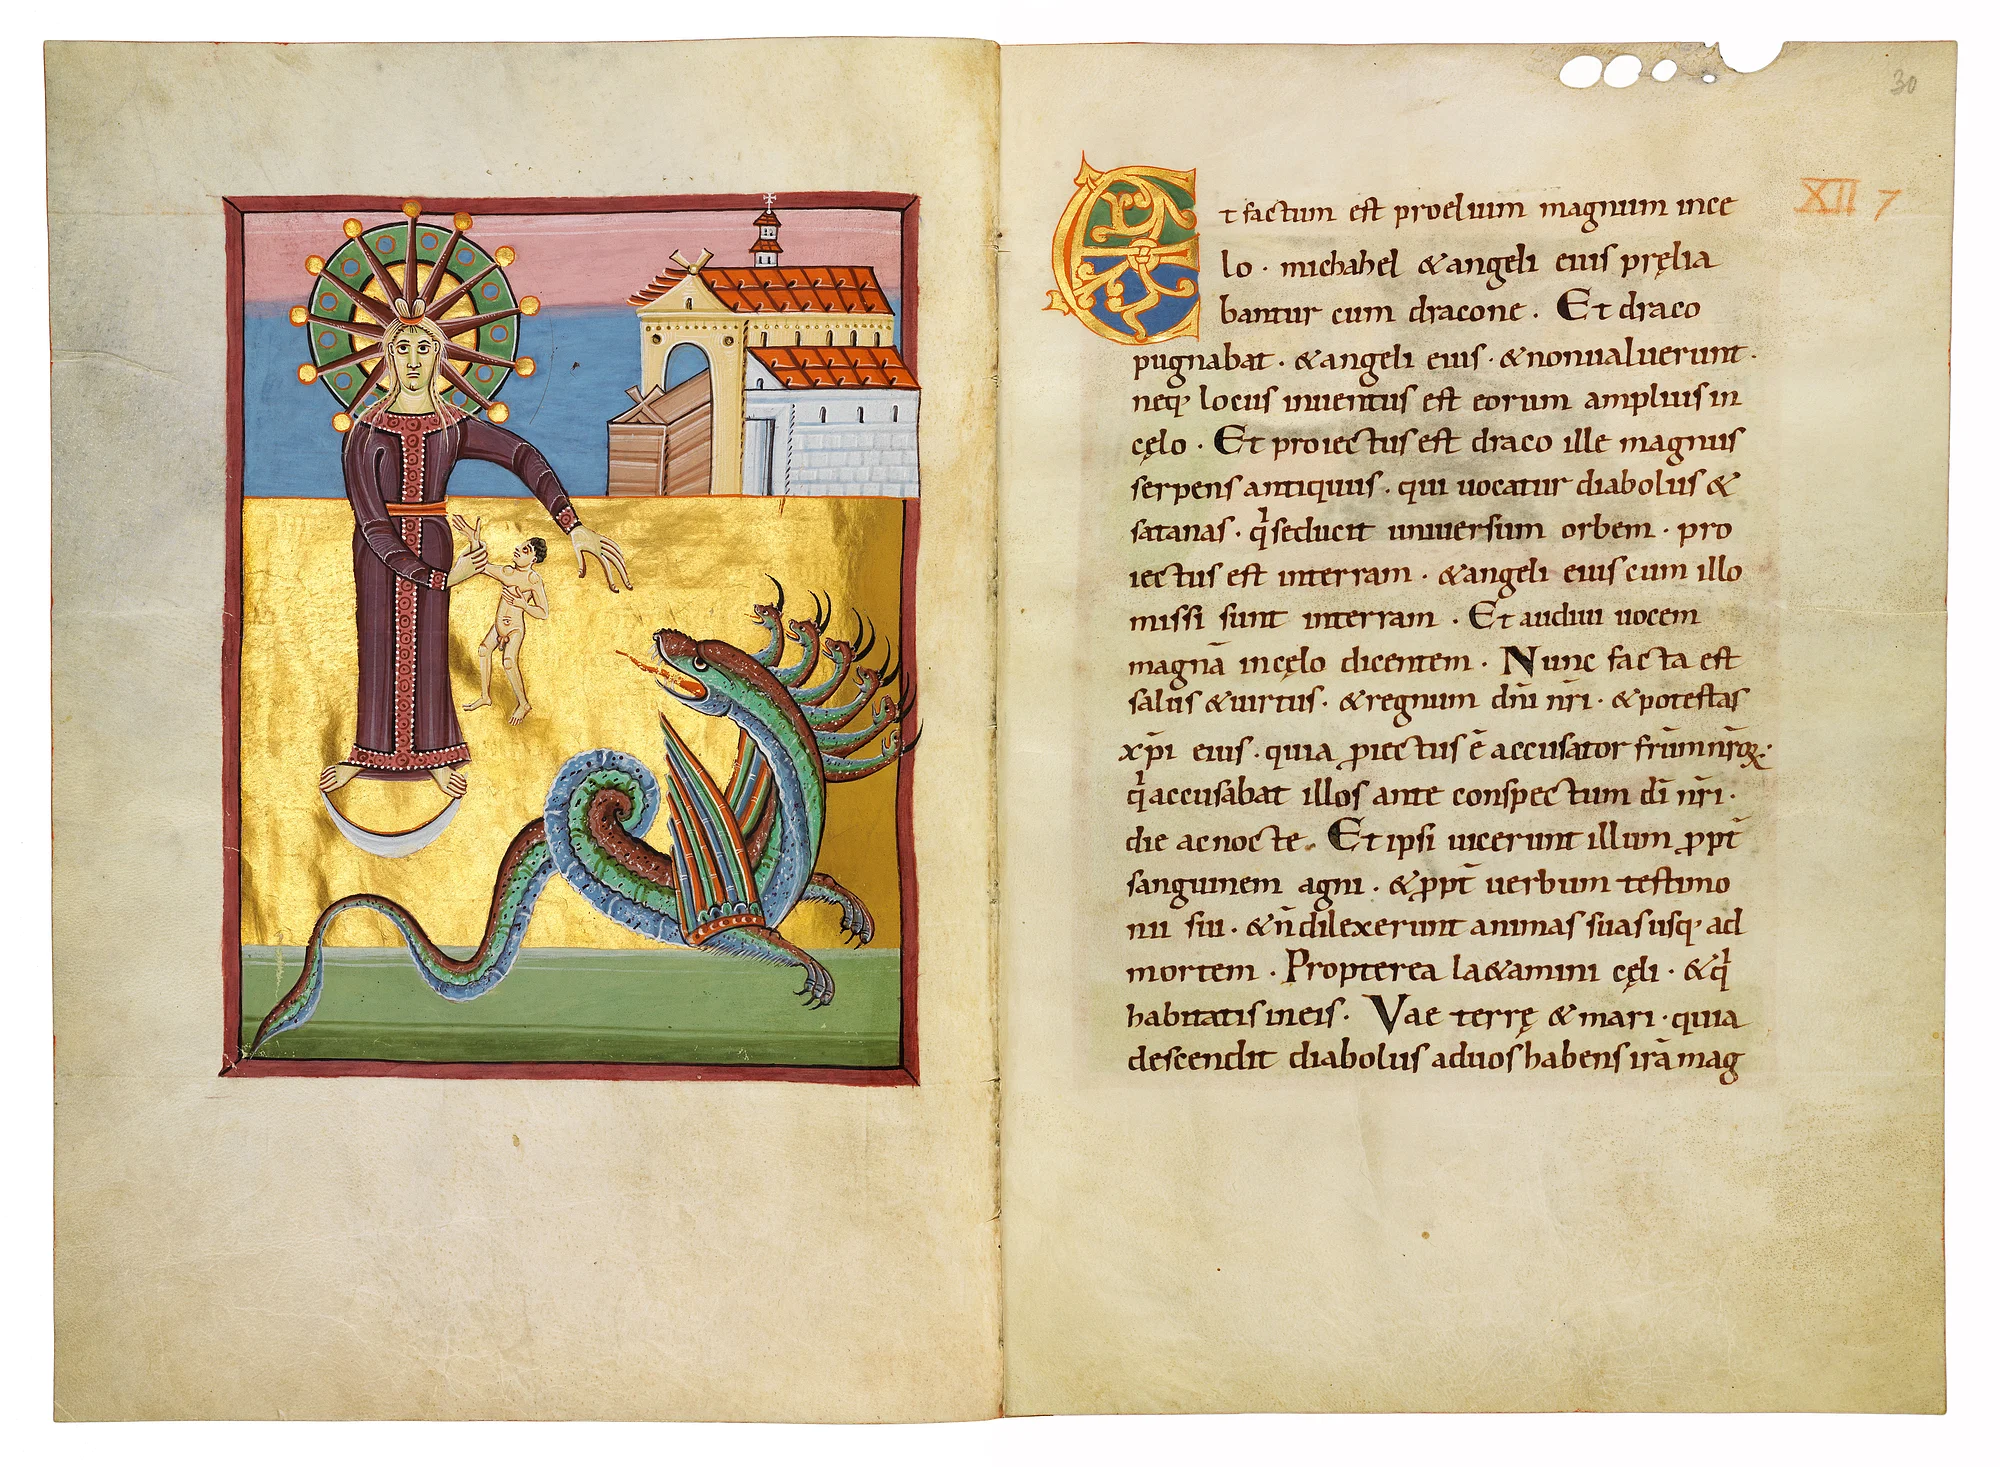 30
XII 7
Et factum est proelium magnum ince
lo · michahel & angeli eius pręlia
bantur cum dracone . Et draco
pugnabat · & angeli eius · & non ualuerunt ·
neq; locus inuentus est eorum amplius in
cęlo · Et proiectus est draco ille magnus
serpens antiquus · qui uocatur diabolus &
satanas · qͥ seducit uniuersum orbem · pro
iectus est interram · & angeli eius cum illo
missi sunt interram · Et audiui uocem
magnā incęlo dicentem · Nunc facta est
salus & uirtus · & regnum dn̄i nr̄i · & potestas
xp̄i eius · quia ꝓiectus ē accusator frūm nr̄oꝝ ·
qͥ accusabat illos ante conspectum dī nr̄i ·
die ac nocte . Et ipsi uicerunt illum ꝓpt̄
sanguinem agni · & ꝓpt̄ uerbum testimo
nii sui · & n̄ dilexerunt animas suas usq; ad
mortem · Propterea l&amini cęli · & qͥ
habitatis ineis · Vae terrę & mari · quia
descendit diabolus aduos habens irā mag